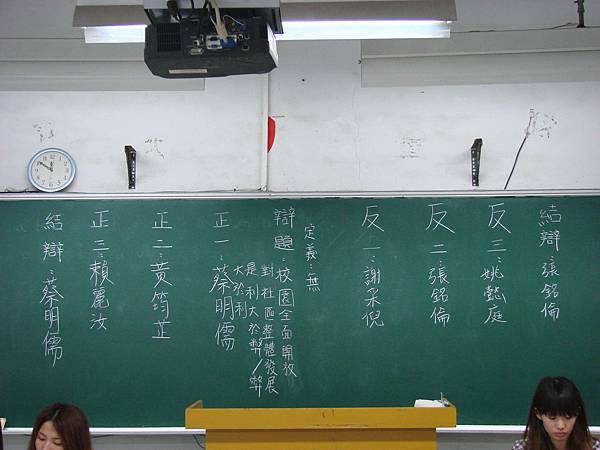 結辯 張銘倫
反三：姚懿庭
反二：張銘倫
反一：謝采倪
定義：無
辯題：校園全面開放
對社區整體發展
是利大於弊/弊
大於利
正一：蔡明儒
正二：黃筠芷
正三：賴麗汝
結辯：蔡明儒